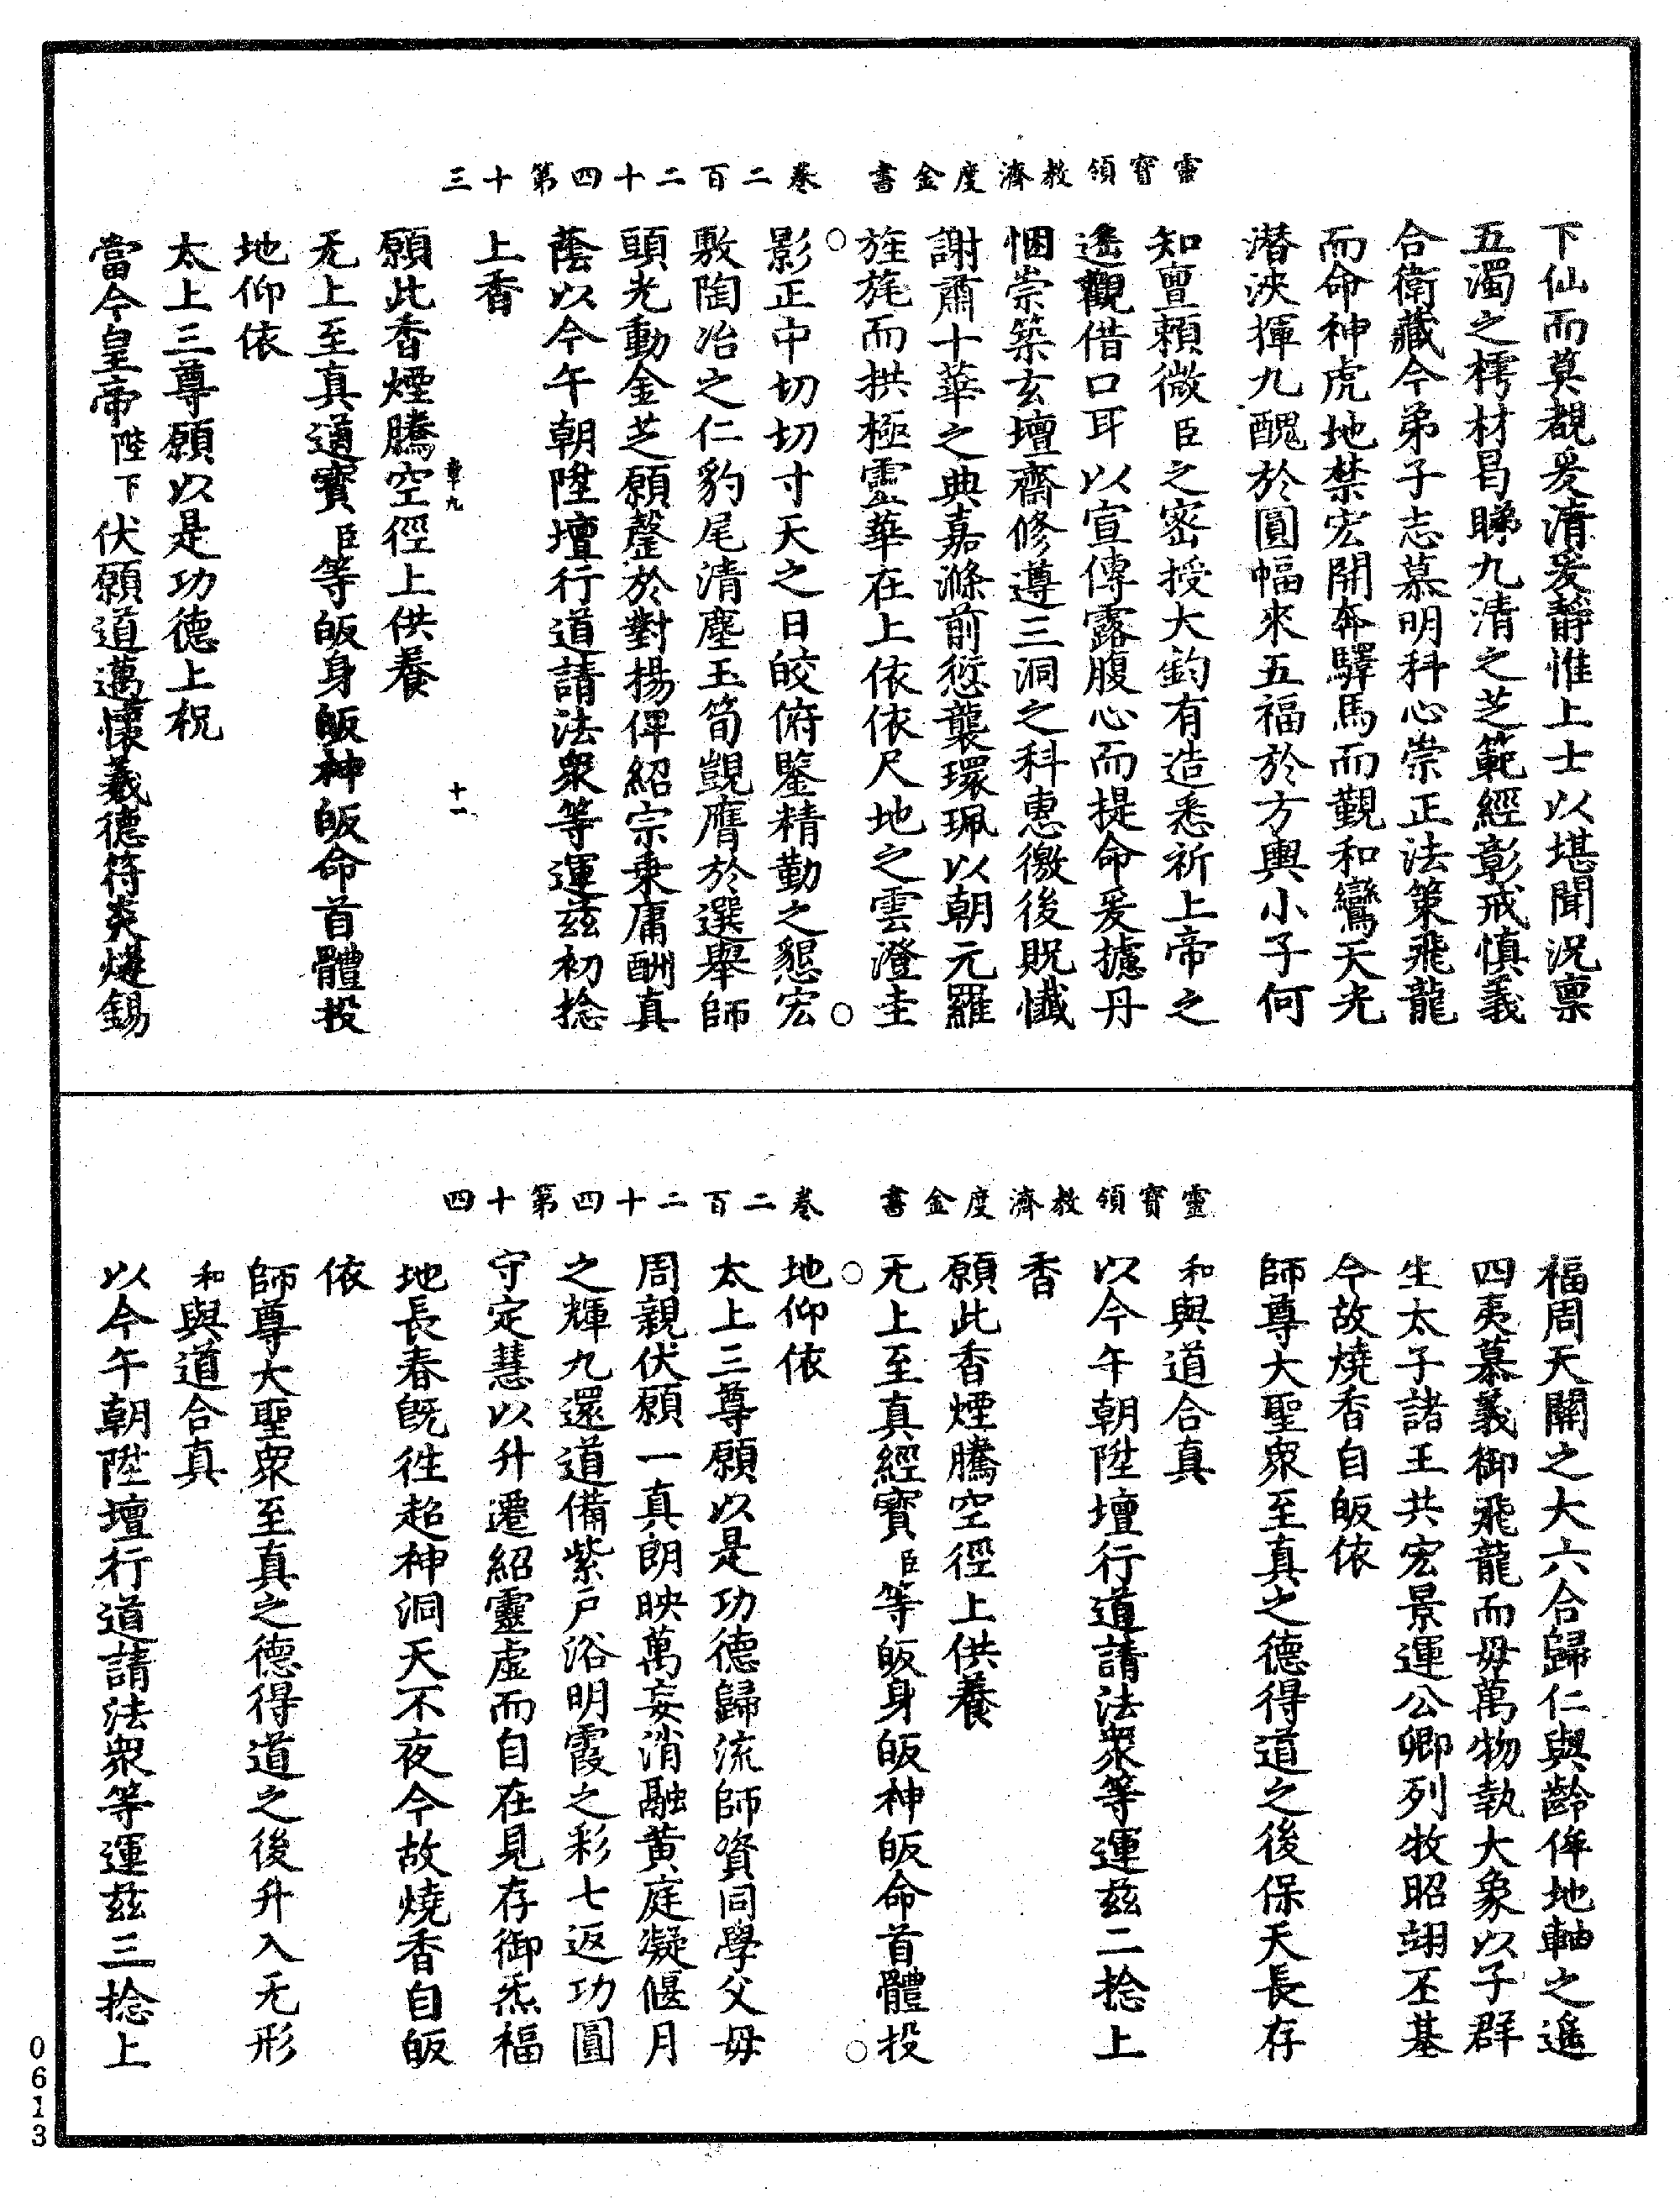 靈寶領教濟度金書　卷二百二十四第十三
下仙而莫覩爰清爰靜惟上士以堪聞況禀
五濁之樗材曷睇九清之芝範經彰戒慎義
合衛藏今弟子志慕明科心崇正法策飛龍
而命神虎地禁宏開奔驛馬而覲和鸞天光
潜泱揮九醜於圓幅來五福於方輿小子何
知亶頼微臣之密授大鈞有造悉祈上帝之
遙觀借口耳以宣傳露腹心而提命爰攄丹
悃崇築玄壇齋修遵三洞之科惠徼後貺懺
謝肅十華之典嘉滌前愆襲環珮以朝元羅
旌旄而拱極雲華在上依依尺地之雲澄圭
影正中切切寸天之日皎俯鑒精勤之懇宏
敷陶冶之仁豹尾清塵玉笥覬膺於選舉師
頭光動金芝願罄於對揚俾紹宗乗庸酬真
蔭以今午朝陞壇行道請法衆等運茲初捻
上香
願此香煙騰空徑上供養
章九　十一
无上至真道寶臣等皈身皈神皈命首體投
地仰依
太上三尊願以是功德上祝
當今皇帝陛下伏願道邁懷羲德符炎燧錫
靈寶領教濟度金書　卷二百二十四第十四
福周天關之大六合歸仁與齡侔地軸之遙
四夷慕義御飛龍而毋萬物執大象以子群
生太子諸王共宏景運公卿列牧昭翊丕基
今故燒香自皈依
師尊大聖衆至真之德得道之後保天長存
和與道合真
以今午朝陞壇行道請法衆等運茲二捻上
香
願此香煙騰空徑上供養
无上至真經寶臣等皈身皈神皈命首體投
地仰依
太上三尊願以是功德歸流師資同學父毋
周親伏願一真朗映萬妄消融黄庭凝偃月
之輝九還道備紫戸浴明霞之彩七返功圓
守定慧以升遷紹靈虚而自在見存御炁福
地長春旣徃超神洞天不夜今故燒香自皈
依
師尊大聖衆至真之德得道之後升入无形
和與道合真
以今午朝陞壇行道請法衆等運茲三捻上
0613